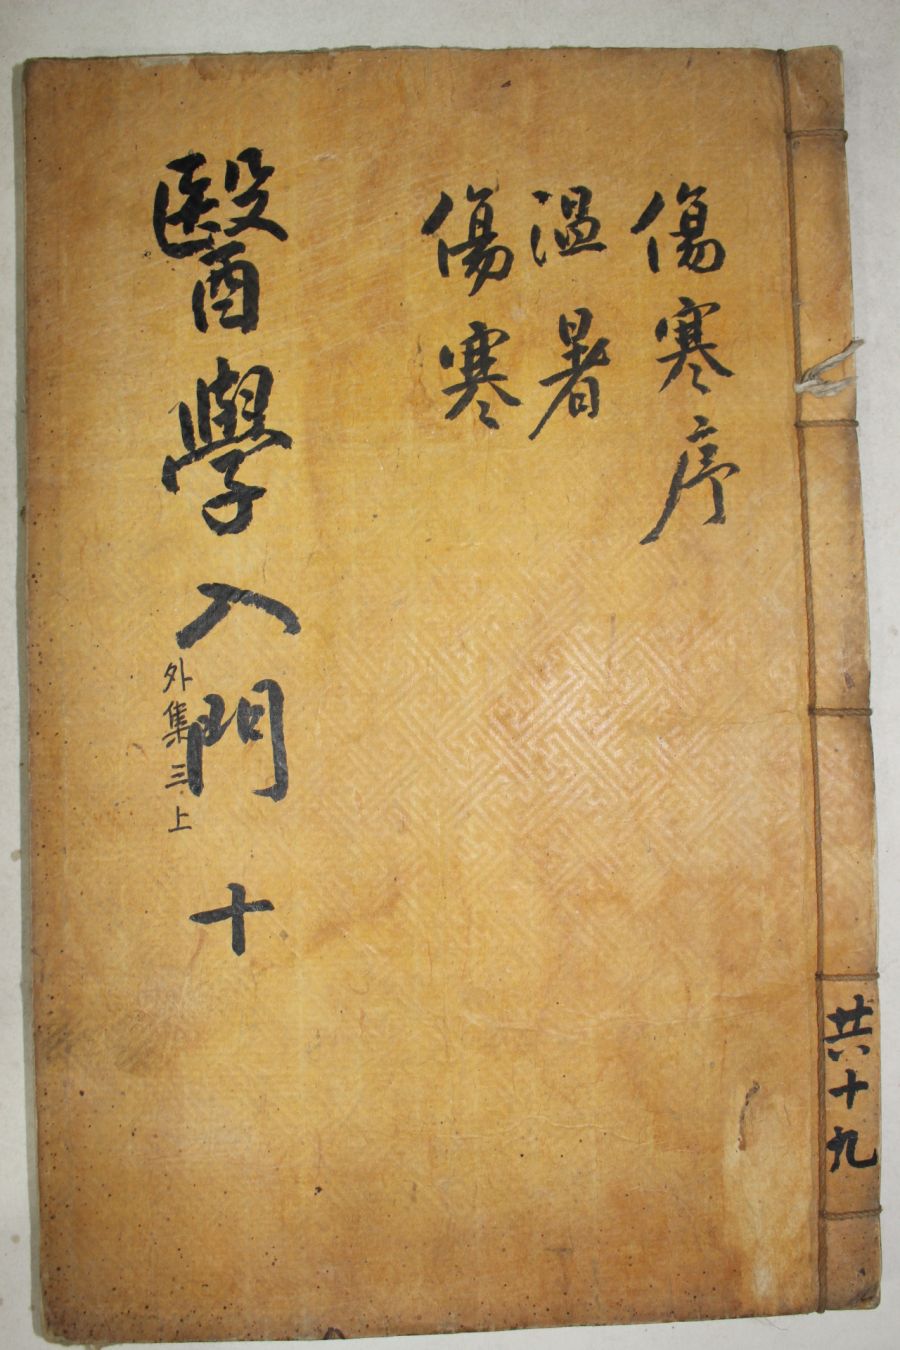 傷寒序
溫暑
傷寒
醫學入門 十
外集 三 上
共十九